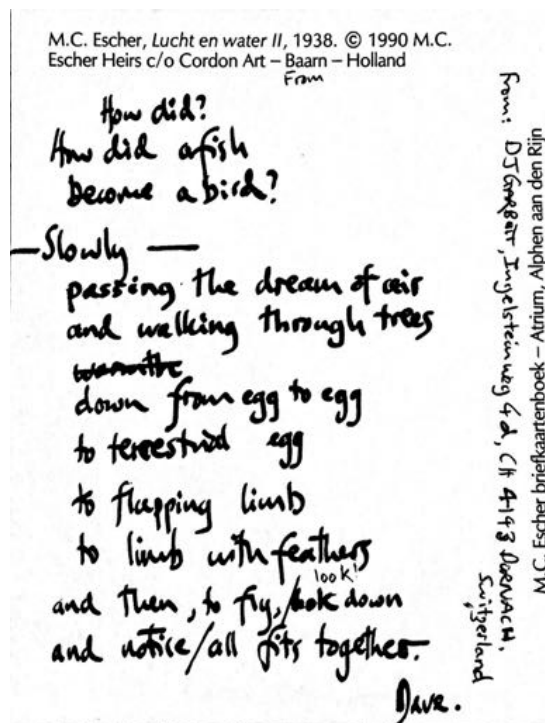 M.C. Escher, Lucht en water II, 1938. © 1990 M.C.
Escher Heirs c/o Cordon Art – Baarn – Holland
From
How did?
How did a fish
become a bird?
— Slowly —
passing the dream of air
and walking through trees
down from egg to egg
to terrestrial egg
to flapping limb
to limb with feathers
look!
and then, to fly, / look down
and notice / all fits together.
Dave.
From: DJ Garbett, Ingelsteinweg 4d, CH 4143 DORNACH,
Switzerland
M.C. Escher briefkaartenboek – Atrium, Alphen aan den Rijn